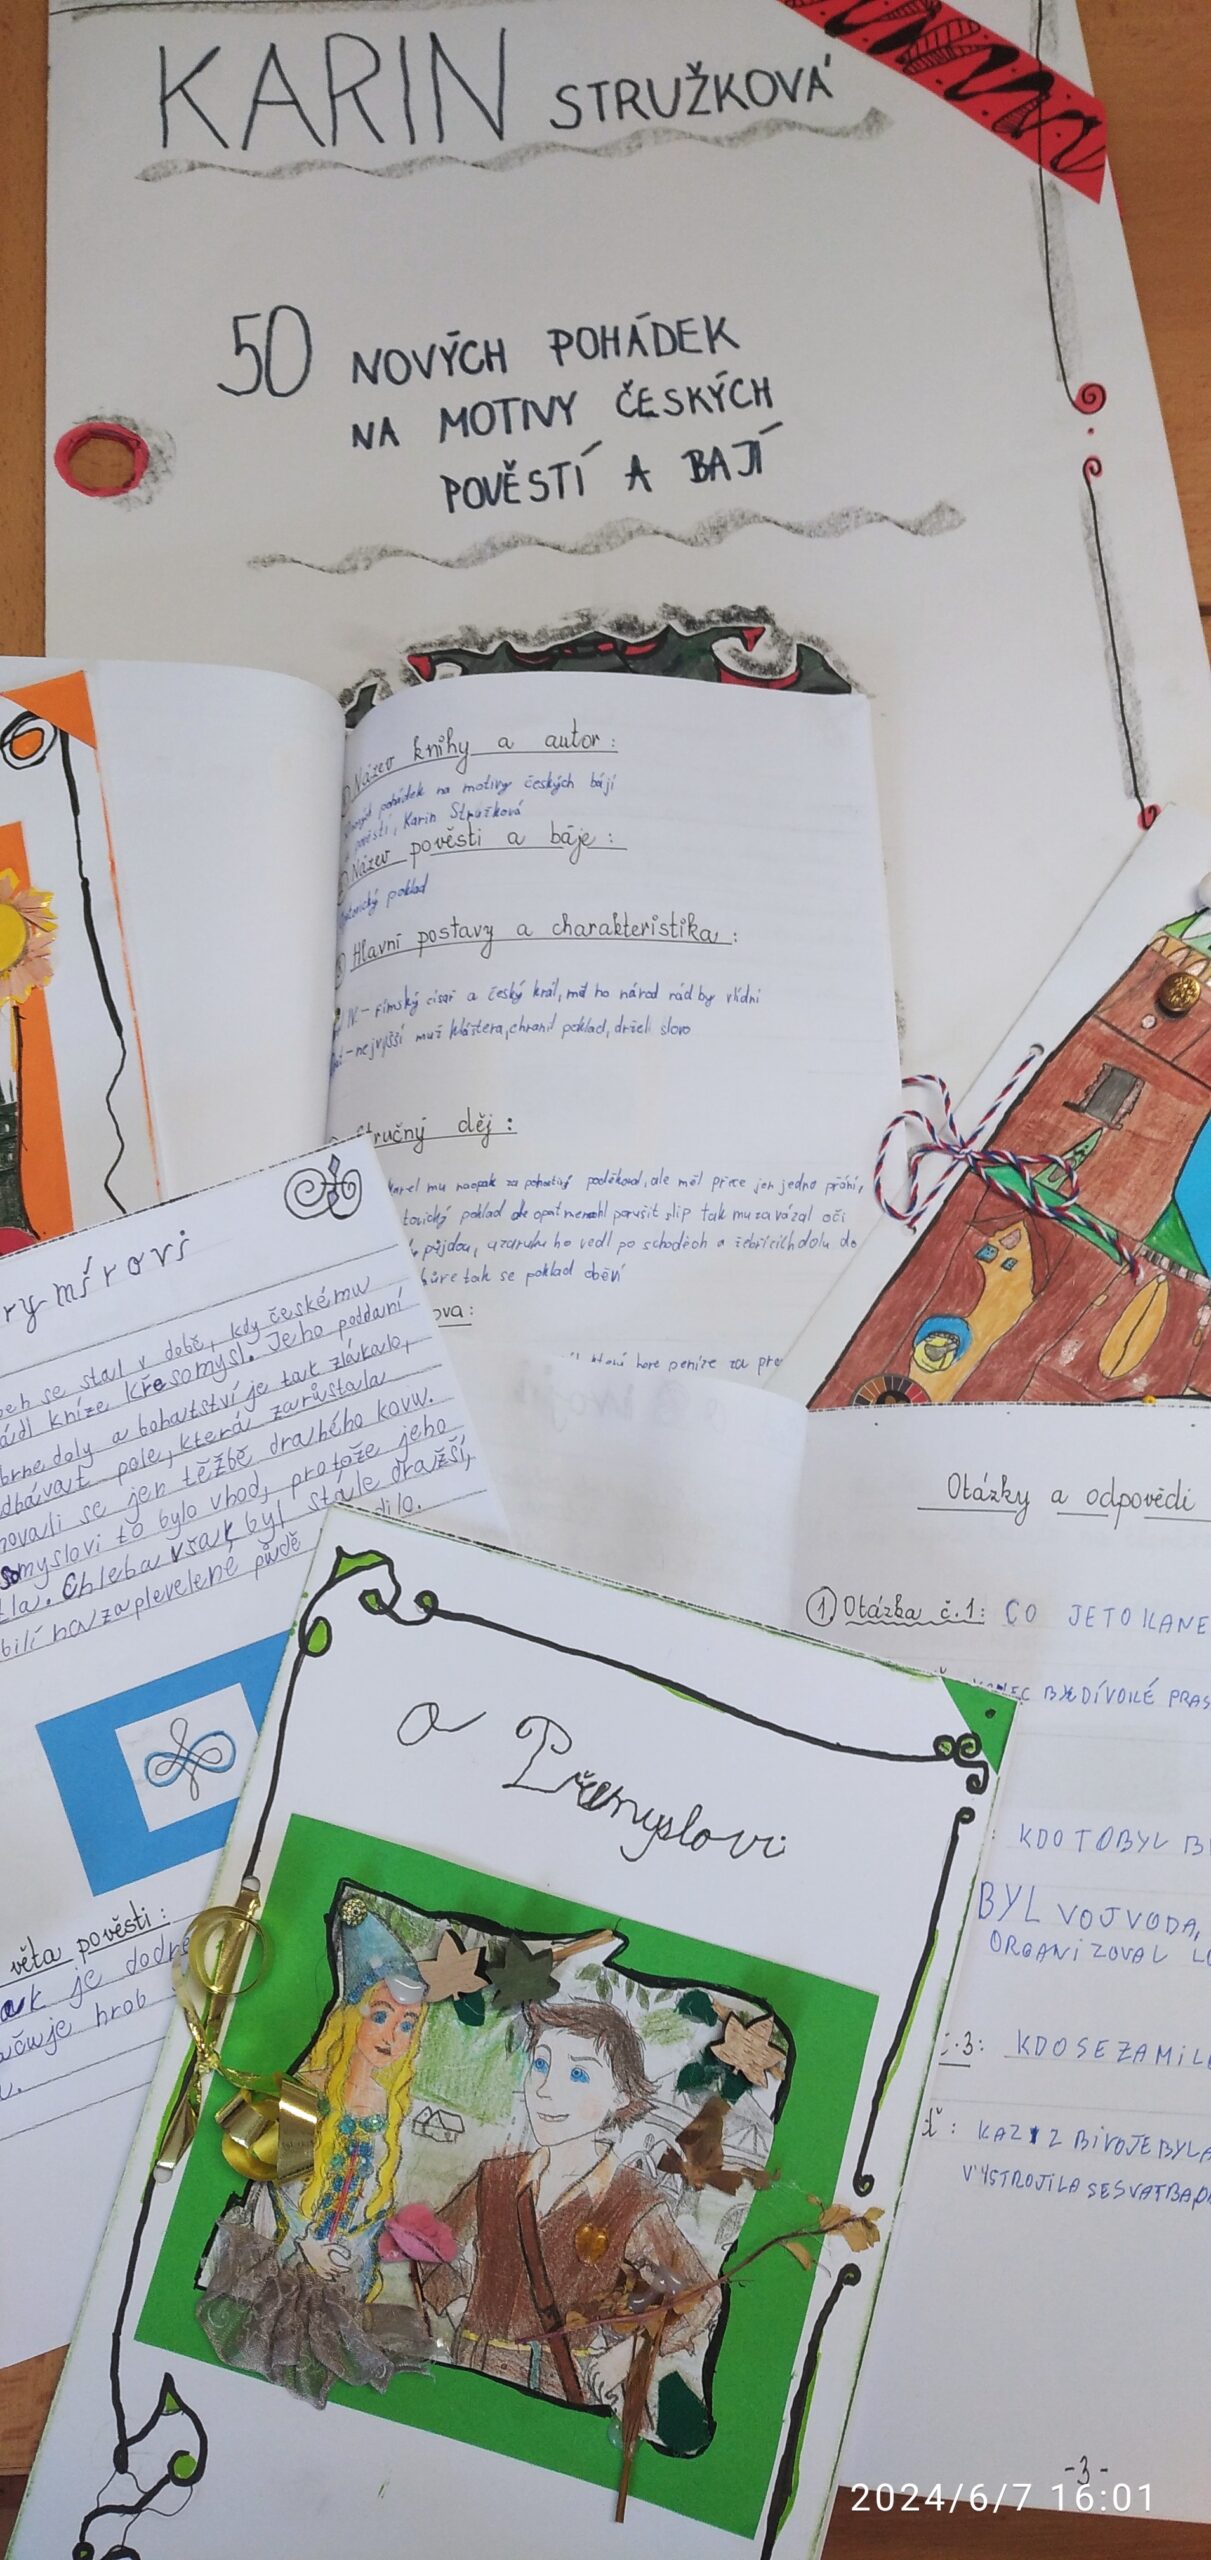 KARIN STRUŽKOVÁ
50 NOVÝCH POHÁDEK
NA MOTIVY ČESKÝCH
POVĚSTÍ A BAJÍ
Název knihy a autor:
pohádek na motivy českých bájí
Karin Stružková
Název pověsti a báje:
poklad
Hlavní postavy a charakteristika:
IV. - římský císař a český král, měl ho národ rád byl vlídní
- nejvyšší muž kláštera, chránil poklad, držel slovo
Stručný děj:
Karel mu naopak za pohostiný poděkoval, ale měl přece jen jedno přání,
poklad ale opat nemohl porušit slip tak mu zavázal oči
půjdou, ho vedl po schodech a žebřících dolu do
tak se poklad
ova:
peníze za
rymírovi
se stal v době, kdy českému
kníže Křesomysl. Jeho poddaní
doly a bohatství je tak zlákalo,
pole, která zarůstala
novali se jen těžbě drahého kovu.
omyslovi to bylo vhod, protože jeho
tla. Chleba však byl stále dražší,
na zaplevelené půdě
dilo.
věta pověsti:
ak je
hrob
O Přemyslovi
Otázky a odpovědi
① Otázka č.1: CO JE TO KANE
DÍVOKÉ PRAS
: KDO TO BYL BI
BYL VOJVODA,
ORGANIZOVAL
č.3: KDO SE ZAMIL
: KAZI Z BIVOJE BYLA
VYSTROJILA SE SVATBA
-3-
2024/6/7 16:01